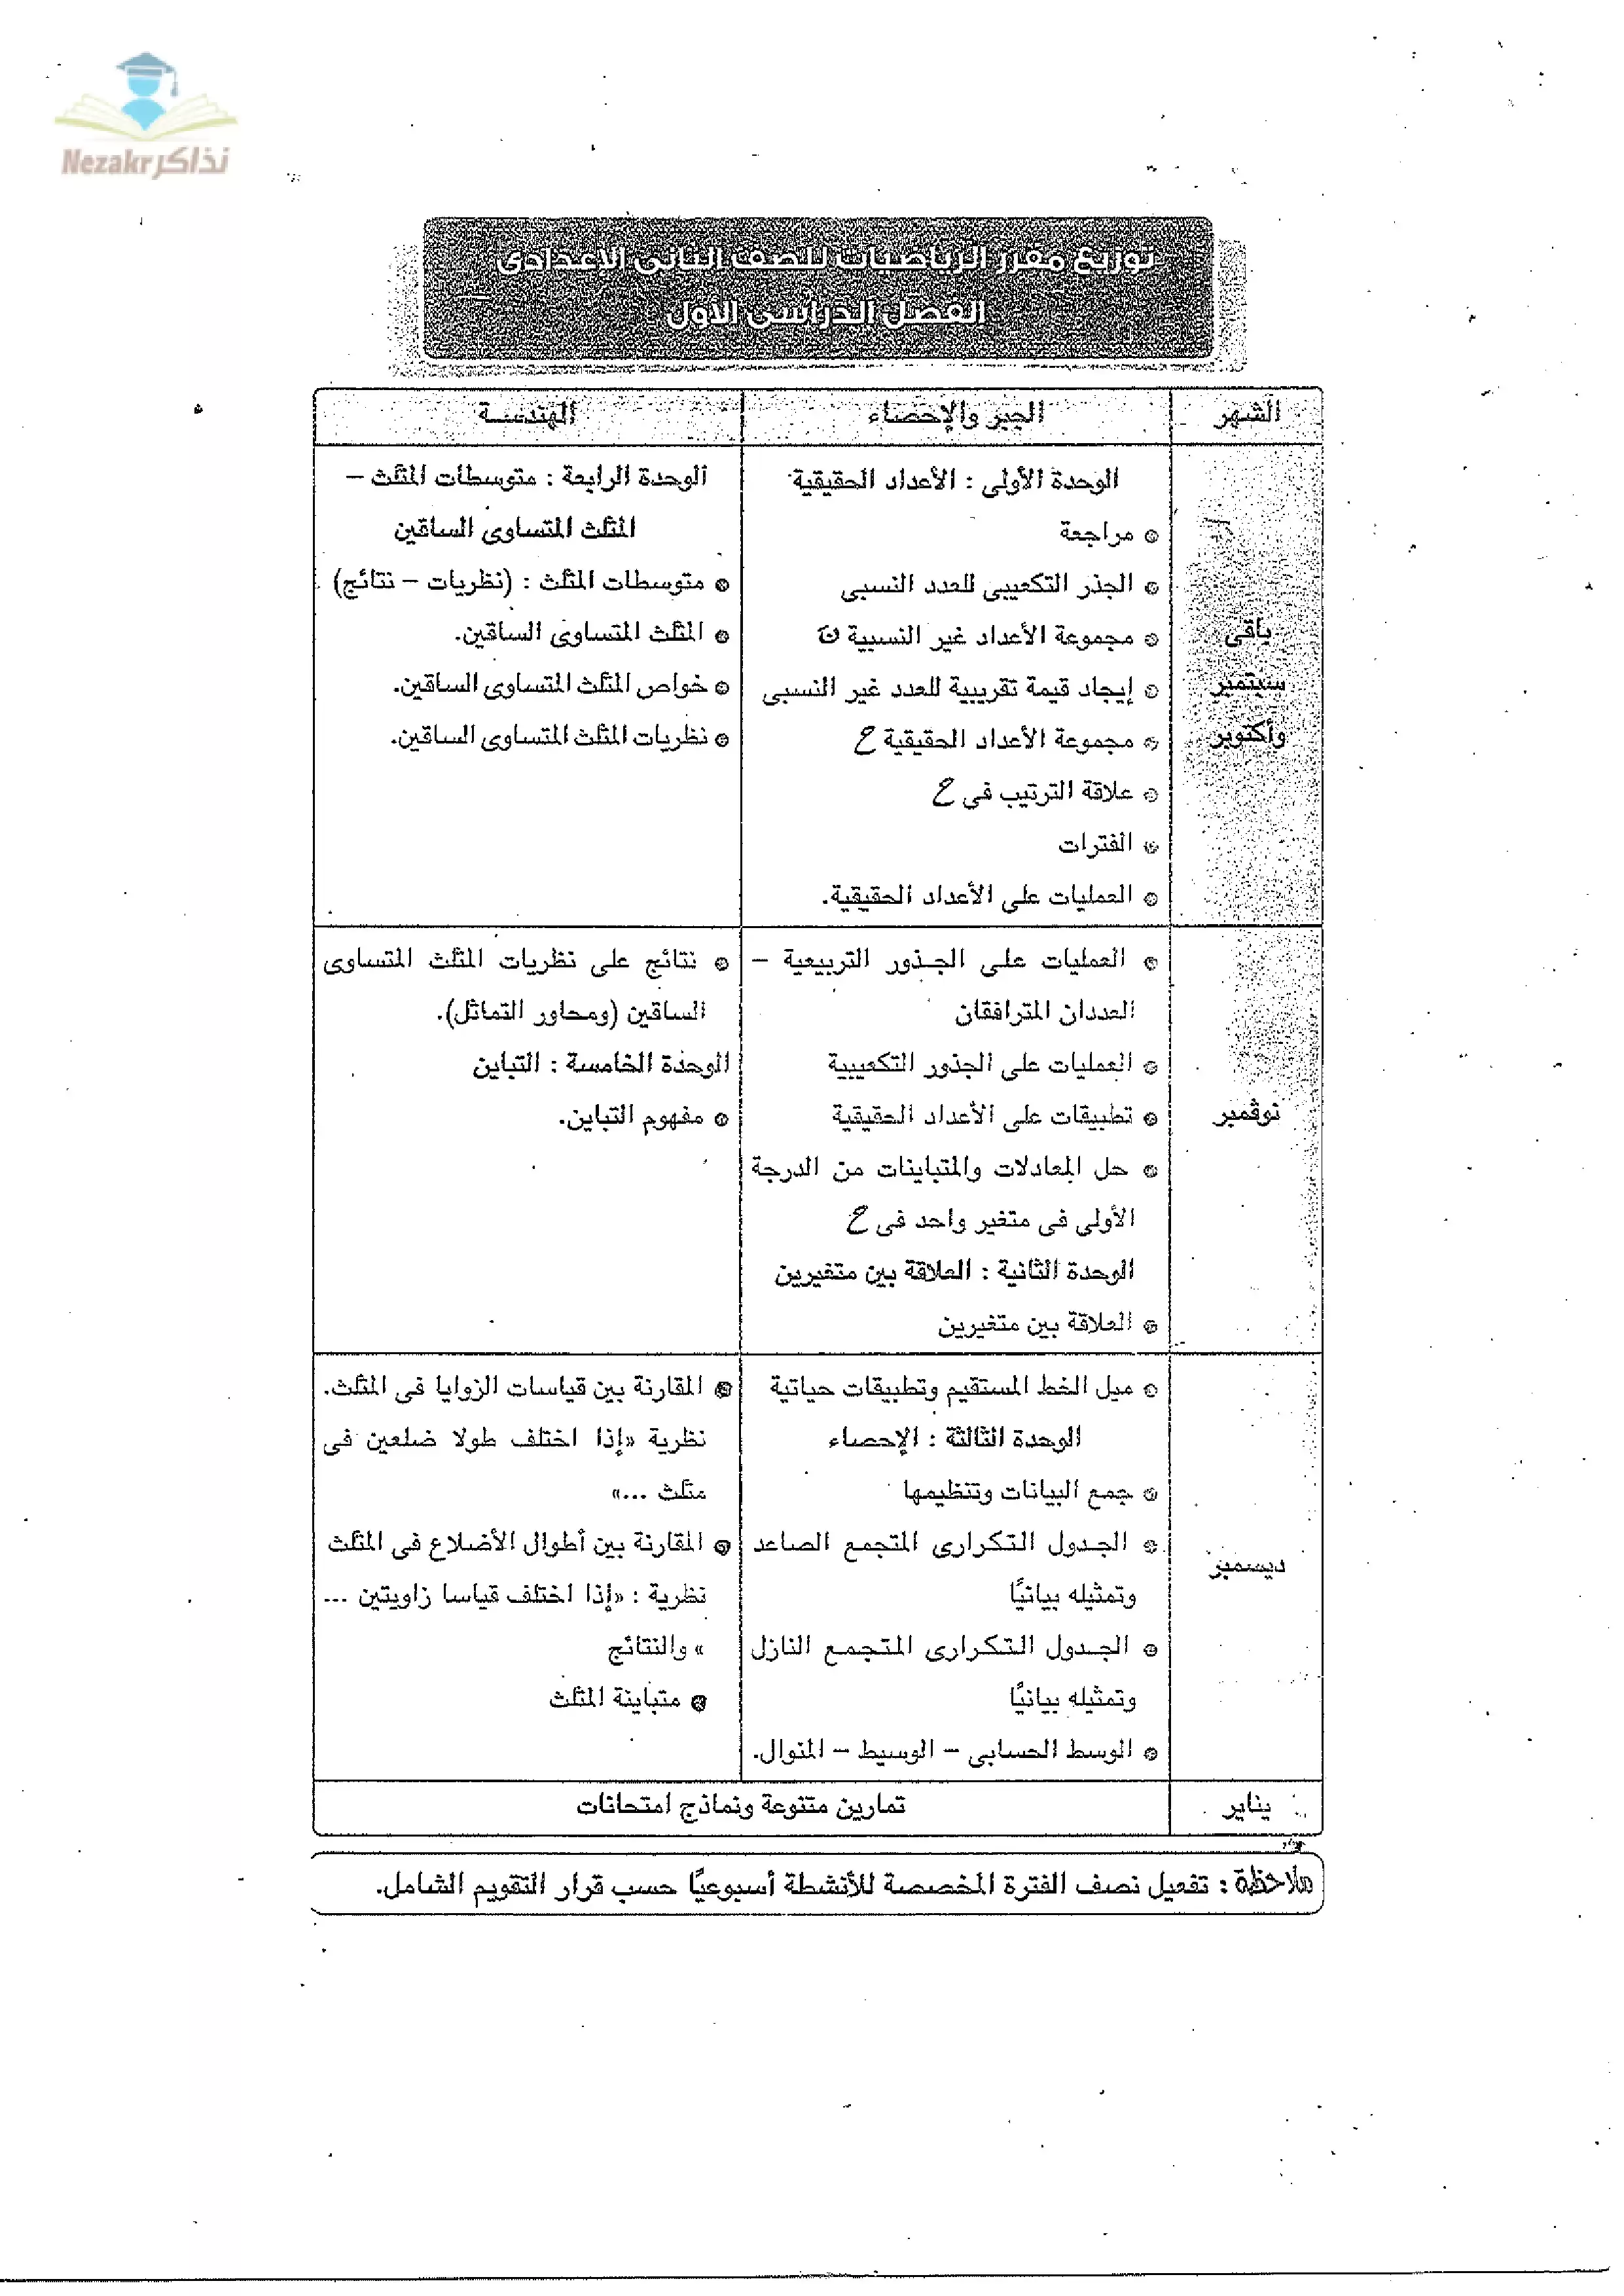 Nezakr نذاكر
توزيع مقرر الرياضيات للصف الثانى الإعدادى
الفصل الدراسى الأول
الشهر
الجبر والإحصاء
الهندسة
باقى
سبتمبر
وأكتوبر
الوحدة الأولى : الأعداد الحقيقية
مراجعة
الجذر التكعيبى للعدد النسبى
مجموعة الأعداد غير النسبية نَ
إيجاد قيمة تقريبية للعدد غير النسبى
مجموعة الأعداد الحقيقية ح
علاقة الترتيب فى ح
الفترات
العمليات على الأعداد الحقيقية.
الوحدة الرابعة : متوسطات المثلث –
المثلث المتساوى الساقين
متوسطات المثلث : (نظريات – نتائج)
المثلث المتساوى الساقين.
خواص المثلث المتساوى الساقين.
نظريات المثلث المتساوى الساقين.
نوڤمبر
العمليات على الجذور التربيعية –
العددان المترافقان
العمليات على الجذور التكعيبية
تطبيقات على الأعداد الحقيقية
حل المعادلات والمتباينات من الدرجة
الأولى فى متغير واحد فى ح
الوحدة الثانية : العلاقة بين متغيرين
العلاقة بين متغيرين
نتائج على نظريات المثلث المتساوى
الساقين (ومحاور التماثل).
الوحدة الخامسة : التباين
مفهوم التباين.
ديسمبر
ميل الخط المستقيم وتطبيقات حياتية
الوحدة الثالثة : الإحصاء
جمع البيانات وتنظيمها
الجدول التكرارى المتجمع الصاعد
وتمثيله بيانيًا
الجدول التكرارى المتجمع النازل
وتمثيله بيانيًا
الوسط الحسابى – الوسيط – المنوال.
المقارنة بين قياسات الزوايا فى المثلث.
نظرية «إذا اختلف طولا ضلعين فى
مثلث ...»
المقارنة بين أطوال الأضلاع فى المثلث
نظرية : «إذا اختلف قياسا زاويتين ...
» والنتائج
متباينة المثلث
يناير
تمارين متنوعة ونماذج امتحانات
ملاحظة : تفعيل نصف الفترة المخصصة للأنشطة أسبوعيًا حسب قرار التقويم الشامل.